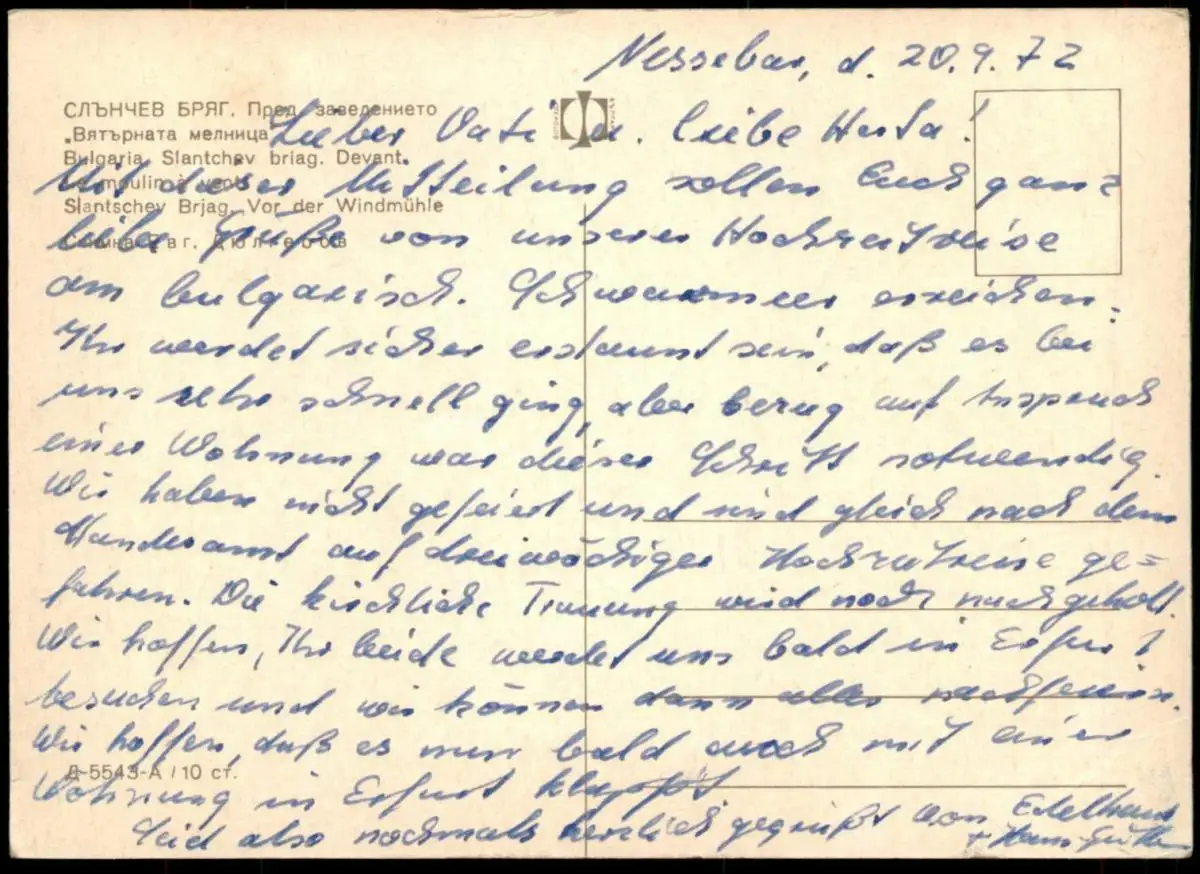 Nessebar, d. 20.9.72
СЛЪНЧЕВ БРЯГ. Пред заведението
„Вятърната мелница
Bulgaria. Slantchev briag. Devant
moulin à vent
Slantschev Brjag. Vor der Windmühle
Снимка Г. Дюлгеров
Lieber Vati u. liebe Herta!
Mit dieser Mitteilung sollen Euch ganz
liebe Grüße von unserer Hochzeitsreise
am bulgarisch. Schwarzmeer erreichen.
Ihr werdet sicher erstaunt sein, daß es bei
uns sehr schnell ging, aber bezug auf Anspruch
einer Wohnung war dieser Schritt notwendig.
Wir haben nicht gefeiert und sind gleich nach dem
Standesamt auf dreiwöchiger Hochzeitsreise ge=
fahren. Die kirchliche Trauung wird noch nachgeholt.
Wir hoffen, Ihr beide werdet uns bald in Erfurt
besuchen und wir können dann alles nachfeiern.
Wir hoffen, daß es nun bald auch mit einer
Wohnung in Erfurt klappt
Seid also nochmals herzlich gegrüßt von Edeltraut
+ Hans-
Д-5543-А / 10 ст.